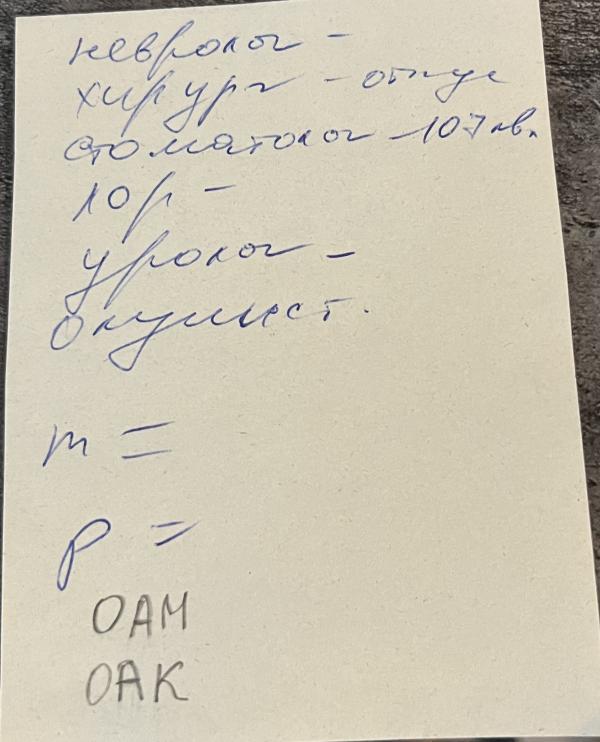 невролог -
хирург - отпус
стоматолог - 107 кв.
лор -
уролог -
окулист.
m =
p =
ОАМ
ОАК